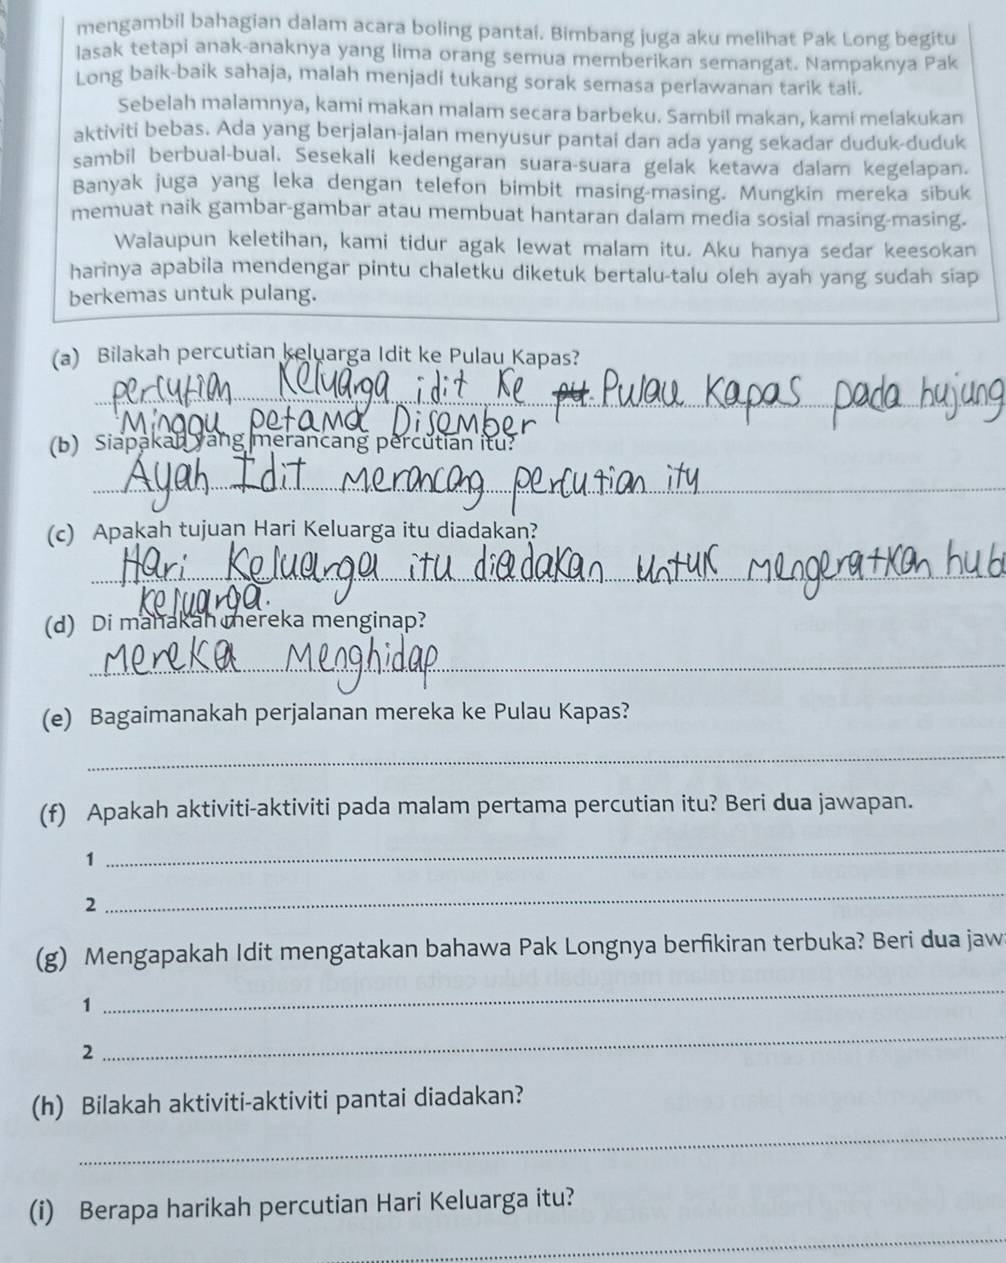 mengambil bahagian dalam acara boling pantai. Bimbang juga aku melihat Pak Long begitu
lasak tetapi anak-anaknya yang lima orang semua memberikan semangat. Nampaknya Pak
Long baik-baik sahaja, malah menjadi tukang sorak semasa perlawanan tarik tali.
Sebelah malamnya, kami makan malam secara barbeku. Sambil makan, kami melakukan
aktiviti bebas. Ada yang berjalan-jalan menyusur pantai dan ada yang sekadar duduk-duduk
sambil berbual-bual. Sesekali kedengaran suara-suara gelak ketawa dalam kegelapan.
Banyak juga yang leka dengan telefon bimbit masing-masing. Mungkin mereka sibuk
memuat naik gambar-gambar atau membuat hantaran dalam media sosial masing-masing.
Walaupun keletihan, kami tidur agak lewat malam itu. Aku hanya sedar keesokan
harinya apabila mendengar pintu chaletku diketuk bertalu-talu oleh ayah yang sudah siap
berkemas untuk pulang.
(a) Bilakah percutian keluarga Idit ke Pulau Kapas?
percution keluarga idit ke Pulau Kapas pada hujung
Minggu petama Disember
(b) Siapakah yang merancang percutian itu?
Ayah Idit merancang percution ity
(c) Apakah tujuan Hari Keluarga itu diadakan?
Hari Keluarga itu diadakan untuk mengeratkan hub
keluarga.
(d) Di manakah mereka menginap?
mereka Menghidap
(e) Bagaimanakah perjalanan mereka ke Pulau Kapas?
(f) Apakah aktiviti-aktiviti pada malam pertama percutian itu? Beri dua jawapan.
1
2
(g) Mengapakah Idit mengatakan bahawa Pak Longnya berfikiran terbuka? Beri dua jaw
1
2
(h) Bilakah aktiviti-aktiviti pantai diadakan?
(i) Berapa harikah percutian Hari Keluarga itu?